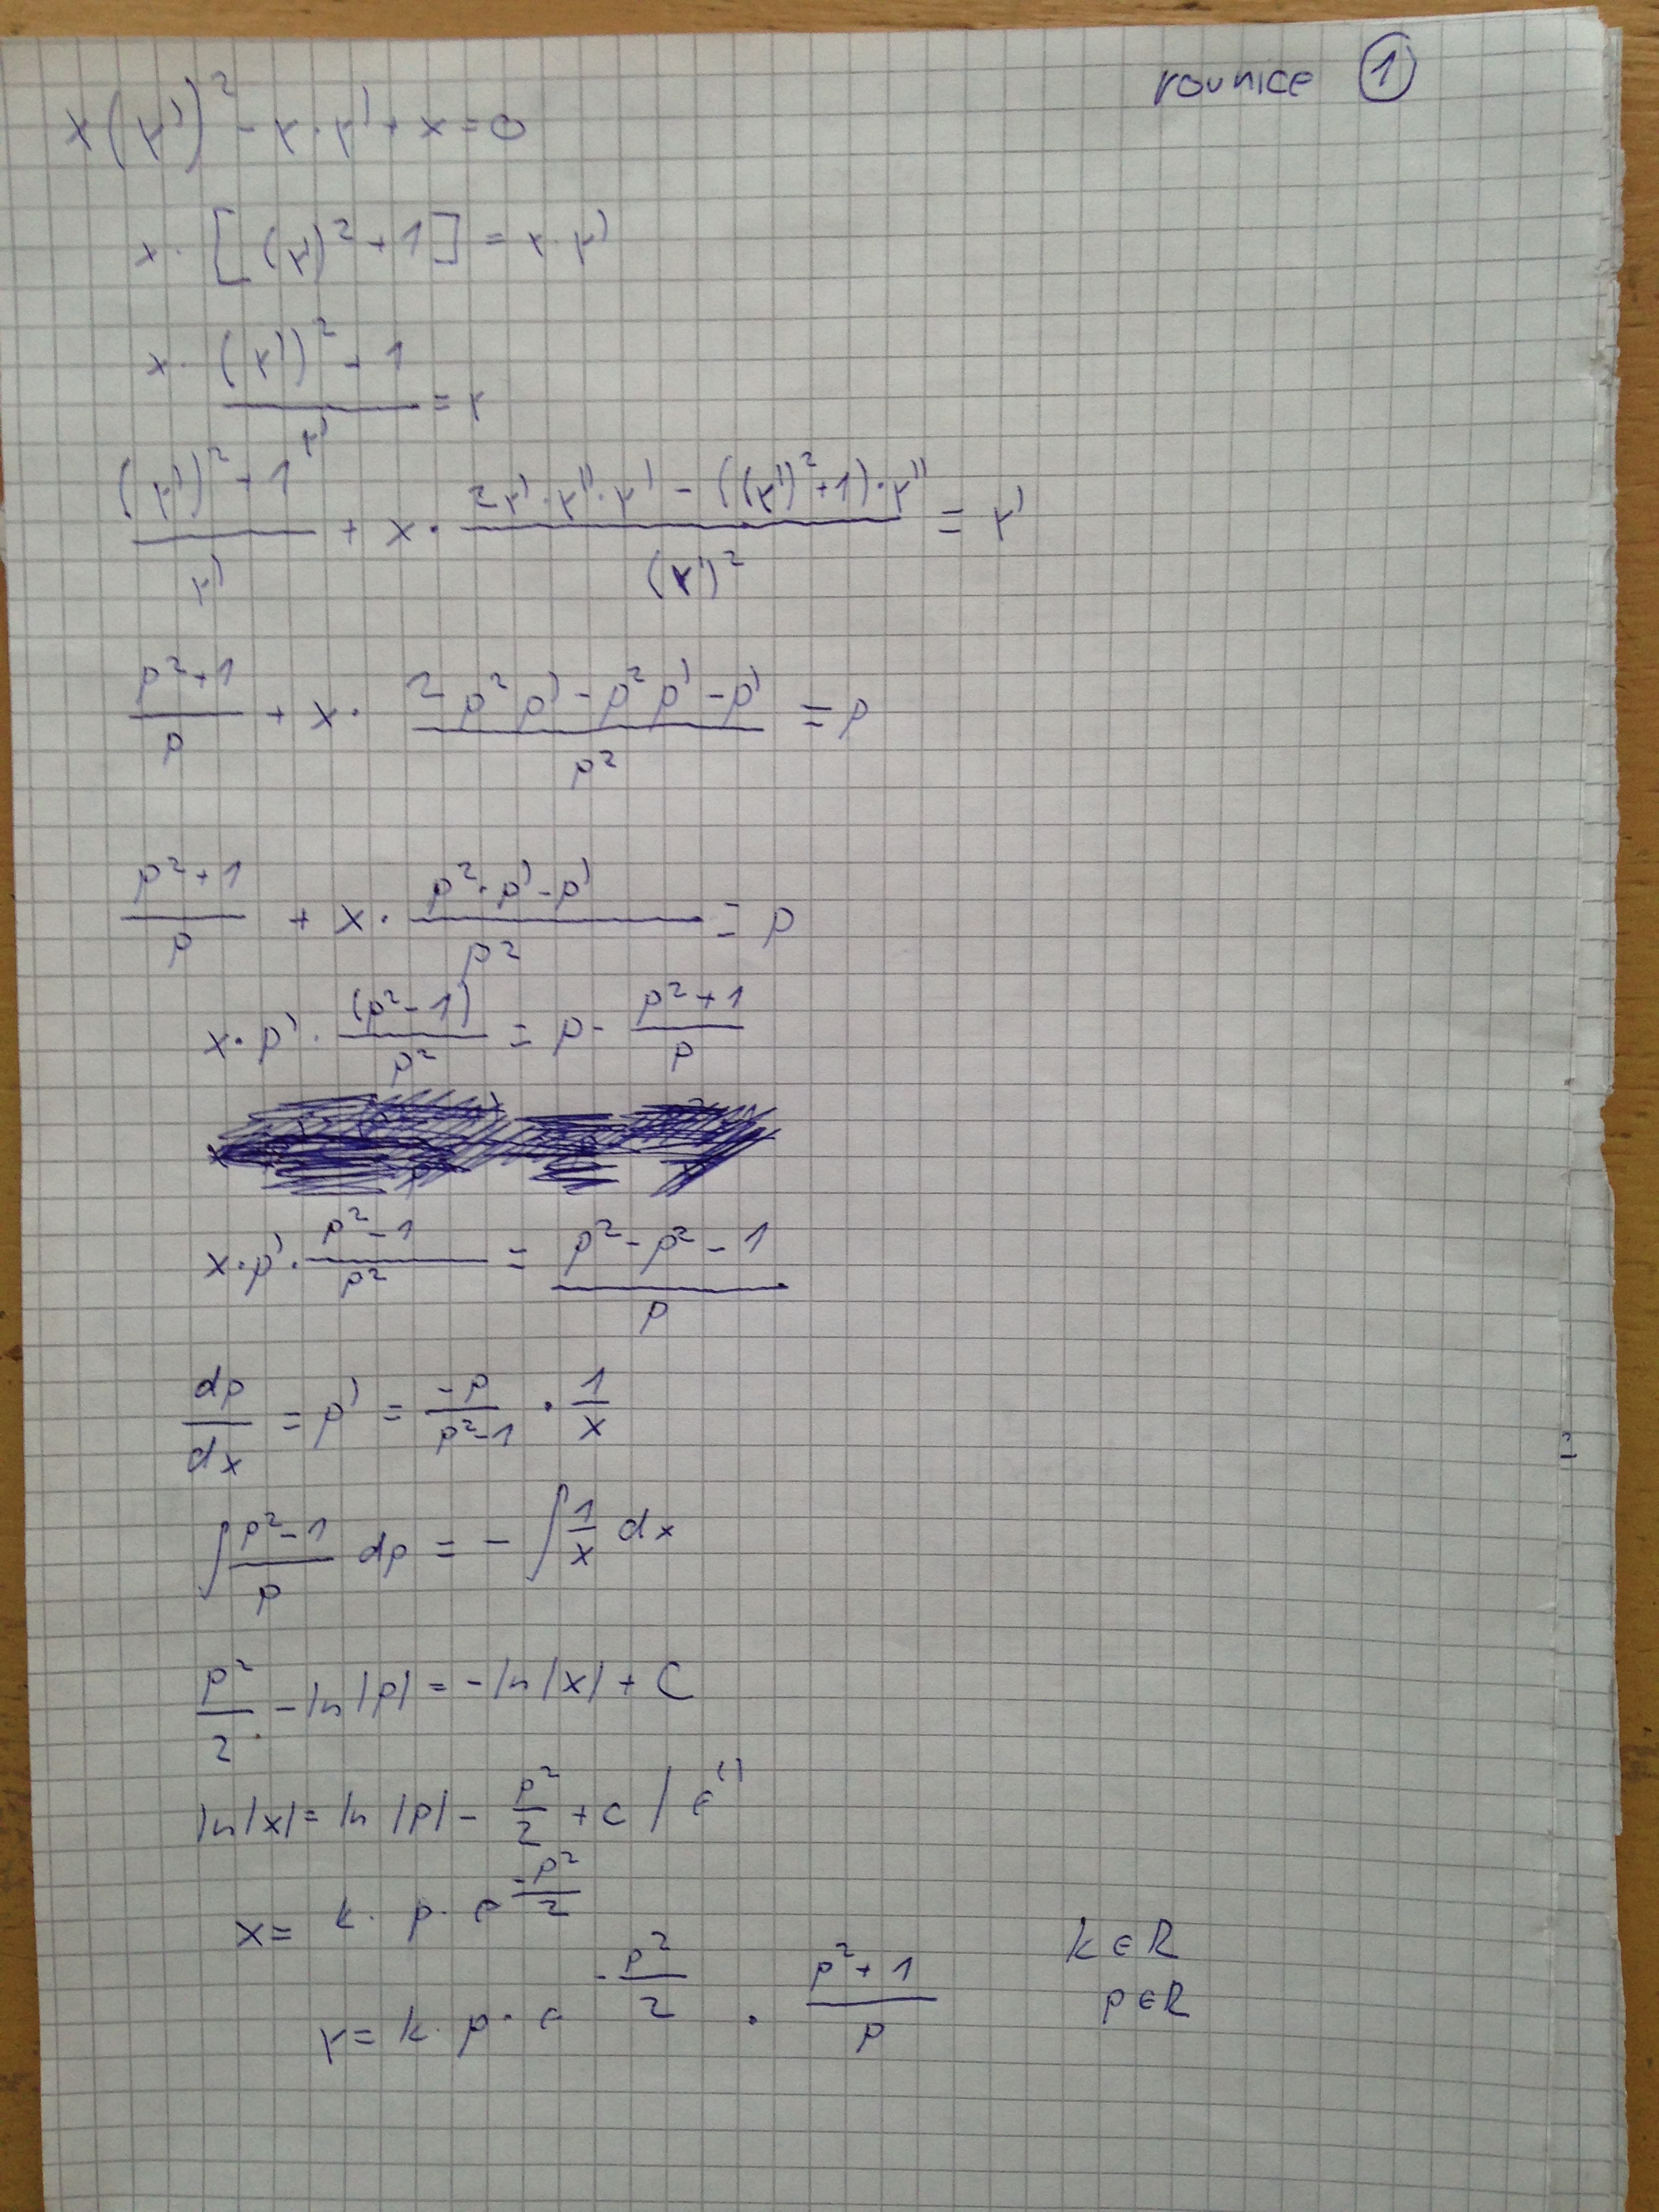 rovnice ①
x(y')² - y·y' + x = 0
x · [(y')² + 1] = y·y'
x · ((y')² + 1) / y' = y
((y')² + 1) / y' + x · (2y'·y''·y' - ((y')² + 1)·y'') / (y')² = y'
(p² + 1) / p + x · (2p²p' - p²p' - p') / p² = p
(p² + 1) / p + x · (p²·p' - p') / p² = p
x · p' · (p² - 1) / p² = p - (p² + 1) / p
x · p' · (p² - 1) / p² = (p² - p² - 1) / p
dp/dx = p' = -p / (p² - 1) · 1/x
∫ (p² - 1) / p dp = - ∫ 1/x dx
p²/2 - ln|p| = -ln|x| + C
ln|x| = ln|p| - p²/2 + c / e^()
x = k · p · e^(-p²/2)
k ∈ R
y = k · p · e^(-p²/2) · (p² + 1) / p
p ∈ R